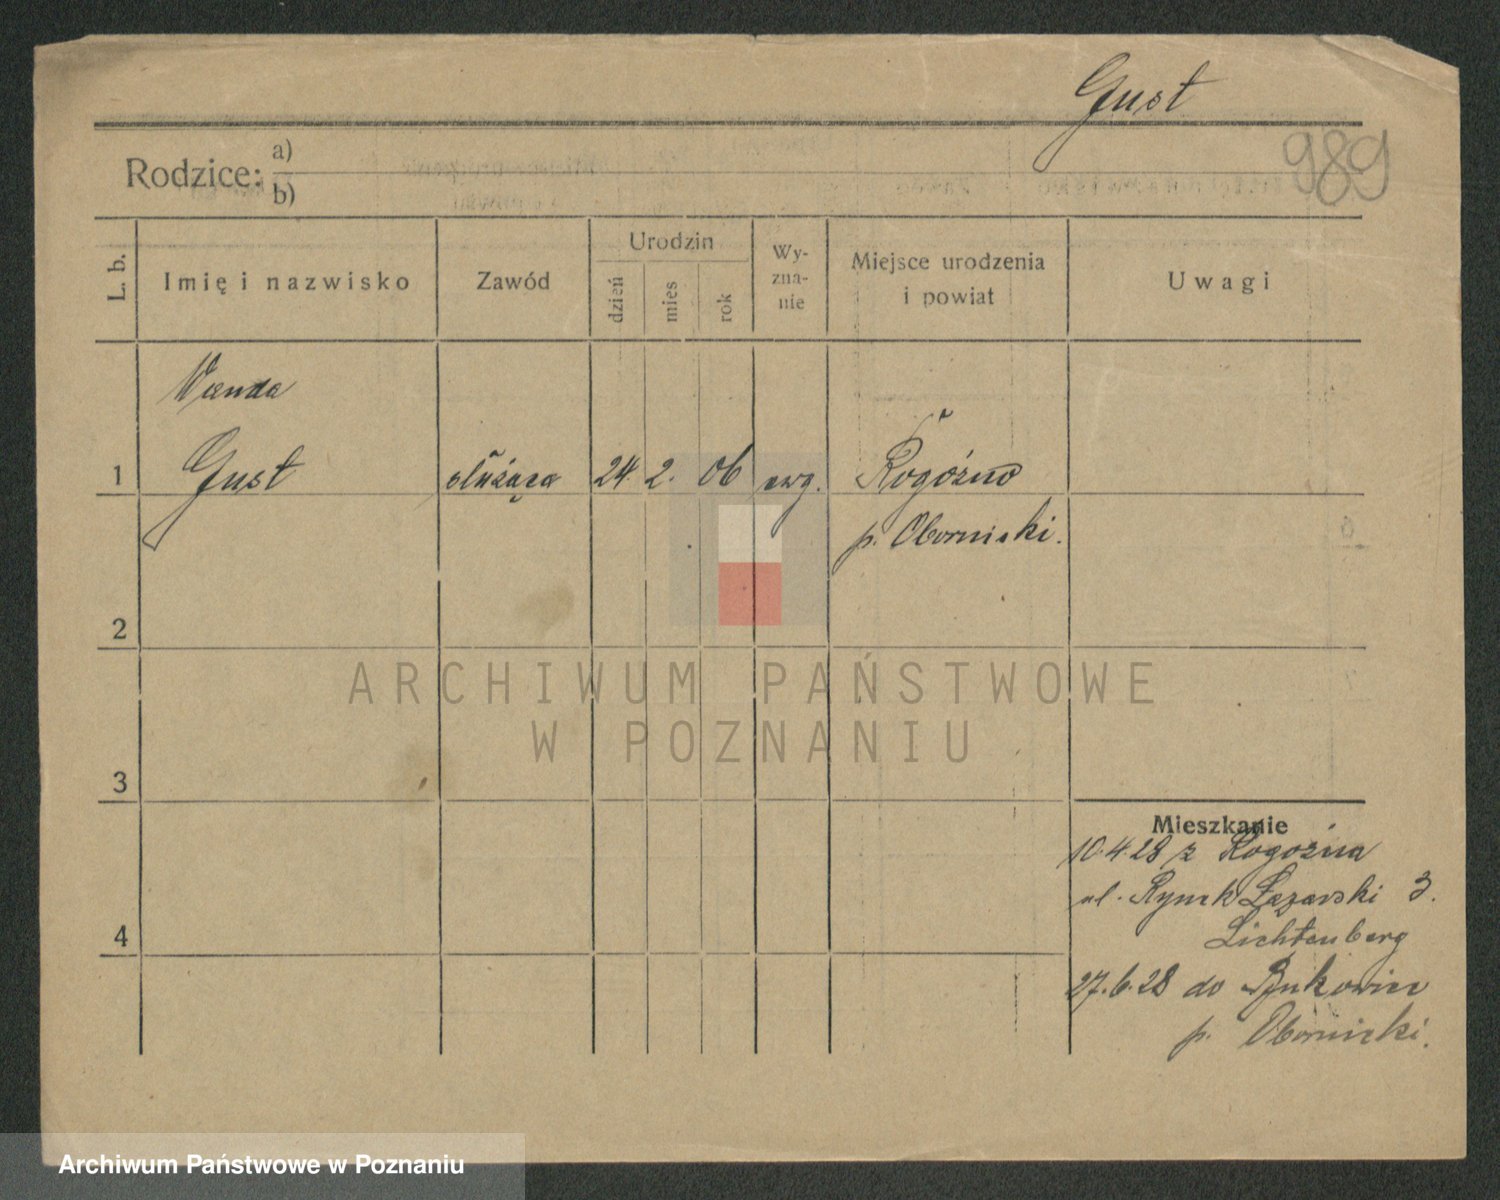 Gust
989
Rodzice: a)
b)
L. b.
Imię i nazwisko
Zawód
Urodzin
dzień
mies
rok
Wy-
zna-
nie
Miejsce urodzenia
i powiat
Uwagi
Wanda
1 Gust służąca 24 2. 06 ewg. Rogóźno
p. Obornicki.
2
3
4
Mieszkanie
10.4.28 z Rogoźna
ul. Rynek Łazarski 3.
Lichtenberg
27.6.28 do Bukowiec
p. Obornicki.
ARCHIWUM PAŃSTWOWE
W POZNANIU
Archiwum Państwowe w Poznaniu